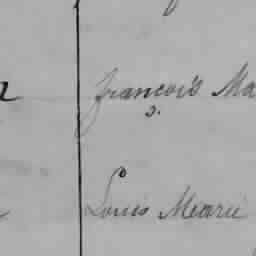 François Ma
s.
Louis Mearie